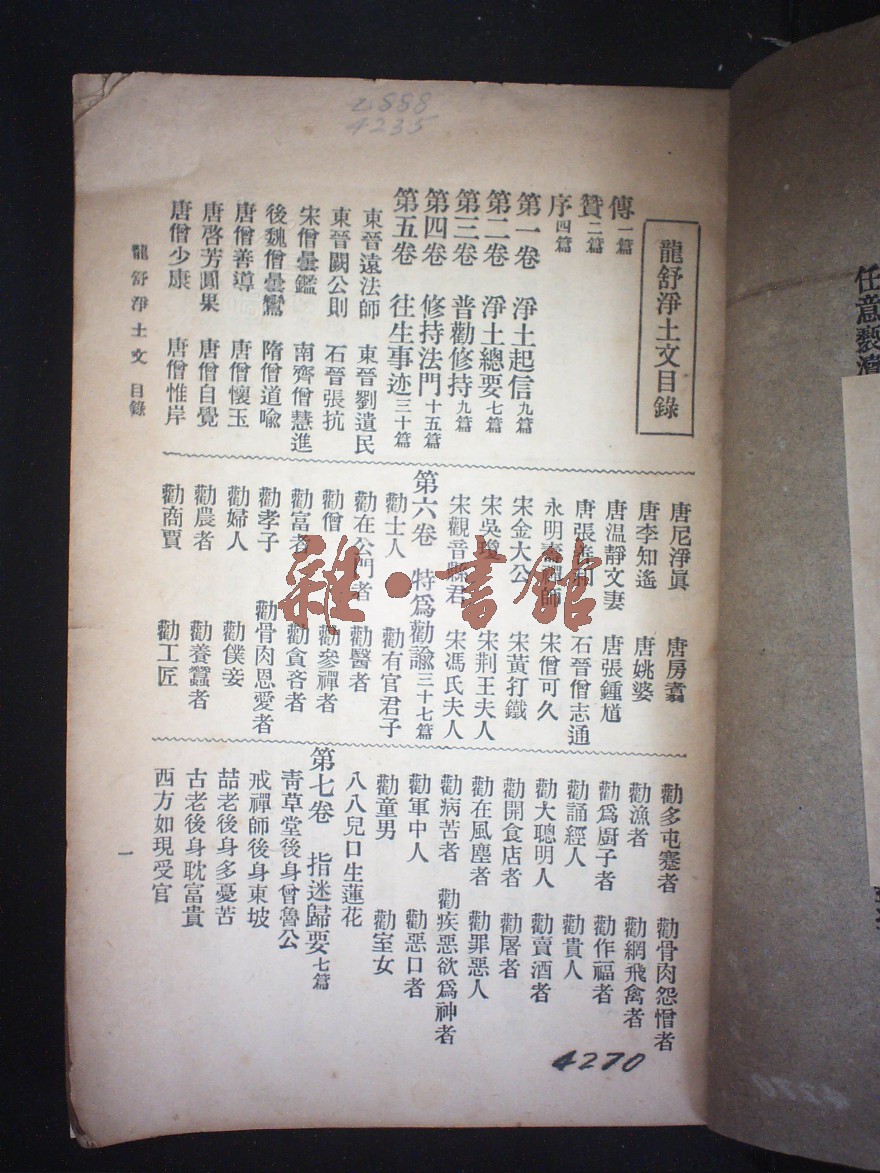 龍舒淨土文目錄
傳一篇
贊二篇
序四篇
第一卷 淨土起信九篇
第二卷 淨土總要七篇
第三卷 普勸修持九篇
第四卷 修持法門十五篇
第五卷 往生事迹三十篇
東晉遠法師 東晉劉遺民
東晉闕公則 石晉張抗
宋僧曇鑑 南齊僧慧進
後魏僧曇鸞 隋僧道喩
唐僧善導 唐僧懷玉
唐啓芳圓果 唐僧自覺
唐僧少康 唐僧惟岸
龍舒淨土文 目錄
唐尼淨眞 唐房翥
唐李知遙 唐姚婆
唐温靜文妻 唐張鍾馗
唐張善和 石晉僧志通
永明壽禪師 宋僧可久
宋金大公 宋黃打鐵
宋吳瓊 宋荆王夫人
宋觀音縣君 宋馮氏夫人
第六卷 特爲勸諭三十七篇
勸士人 勸有官君子
勸在公門者 勸醫者
勸僧 勸參禪者
勸富者 勸貪吝者
勸孝子 勸骨肉恩愛者
勸婦人 勸僕妾
勸農者 勸養蠶者
勸商賈 勸工匠
勸多屯蹇者 勸骨肉怨憎者
勸漁者 勸網飛禽者
勸爲厨子者 勸作福者
勸誦經人 勸貴人
勸大聰明人 勸賣酒者
勸開食店者 勸屠者
勸在風塵者 勸罪惡人
勸病苦者 勸疾惡欲爲神者
勸軍中人 勸惡口者
勸童男 勸室女
八八兒口生蓮花
第七卷 指迷歸要七篇
靑草堂後身曾魯公
戒禪師後身東坡
喆老後身多憂苦
古老後身耽富貴
西方如現受官
一
2888
4235
4270
雜·書館
任意褻瀆